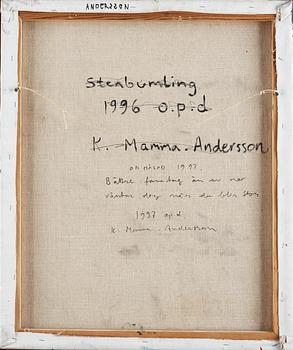 ANDERSSON
Stenbumling
1996 o.p.d
K. Mamma. Andersson
OMMÅLAD 1997.
Bättre framtag än en mer
väntar dig när du blir stor
1997 o.p.d.
K. Mamma. Andersson